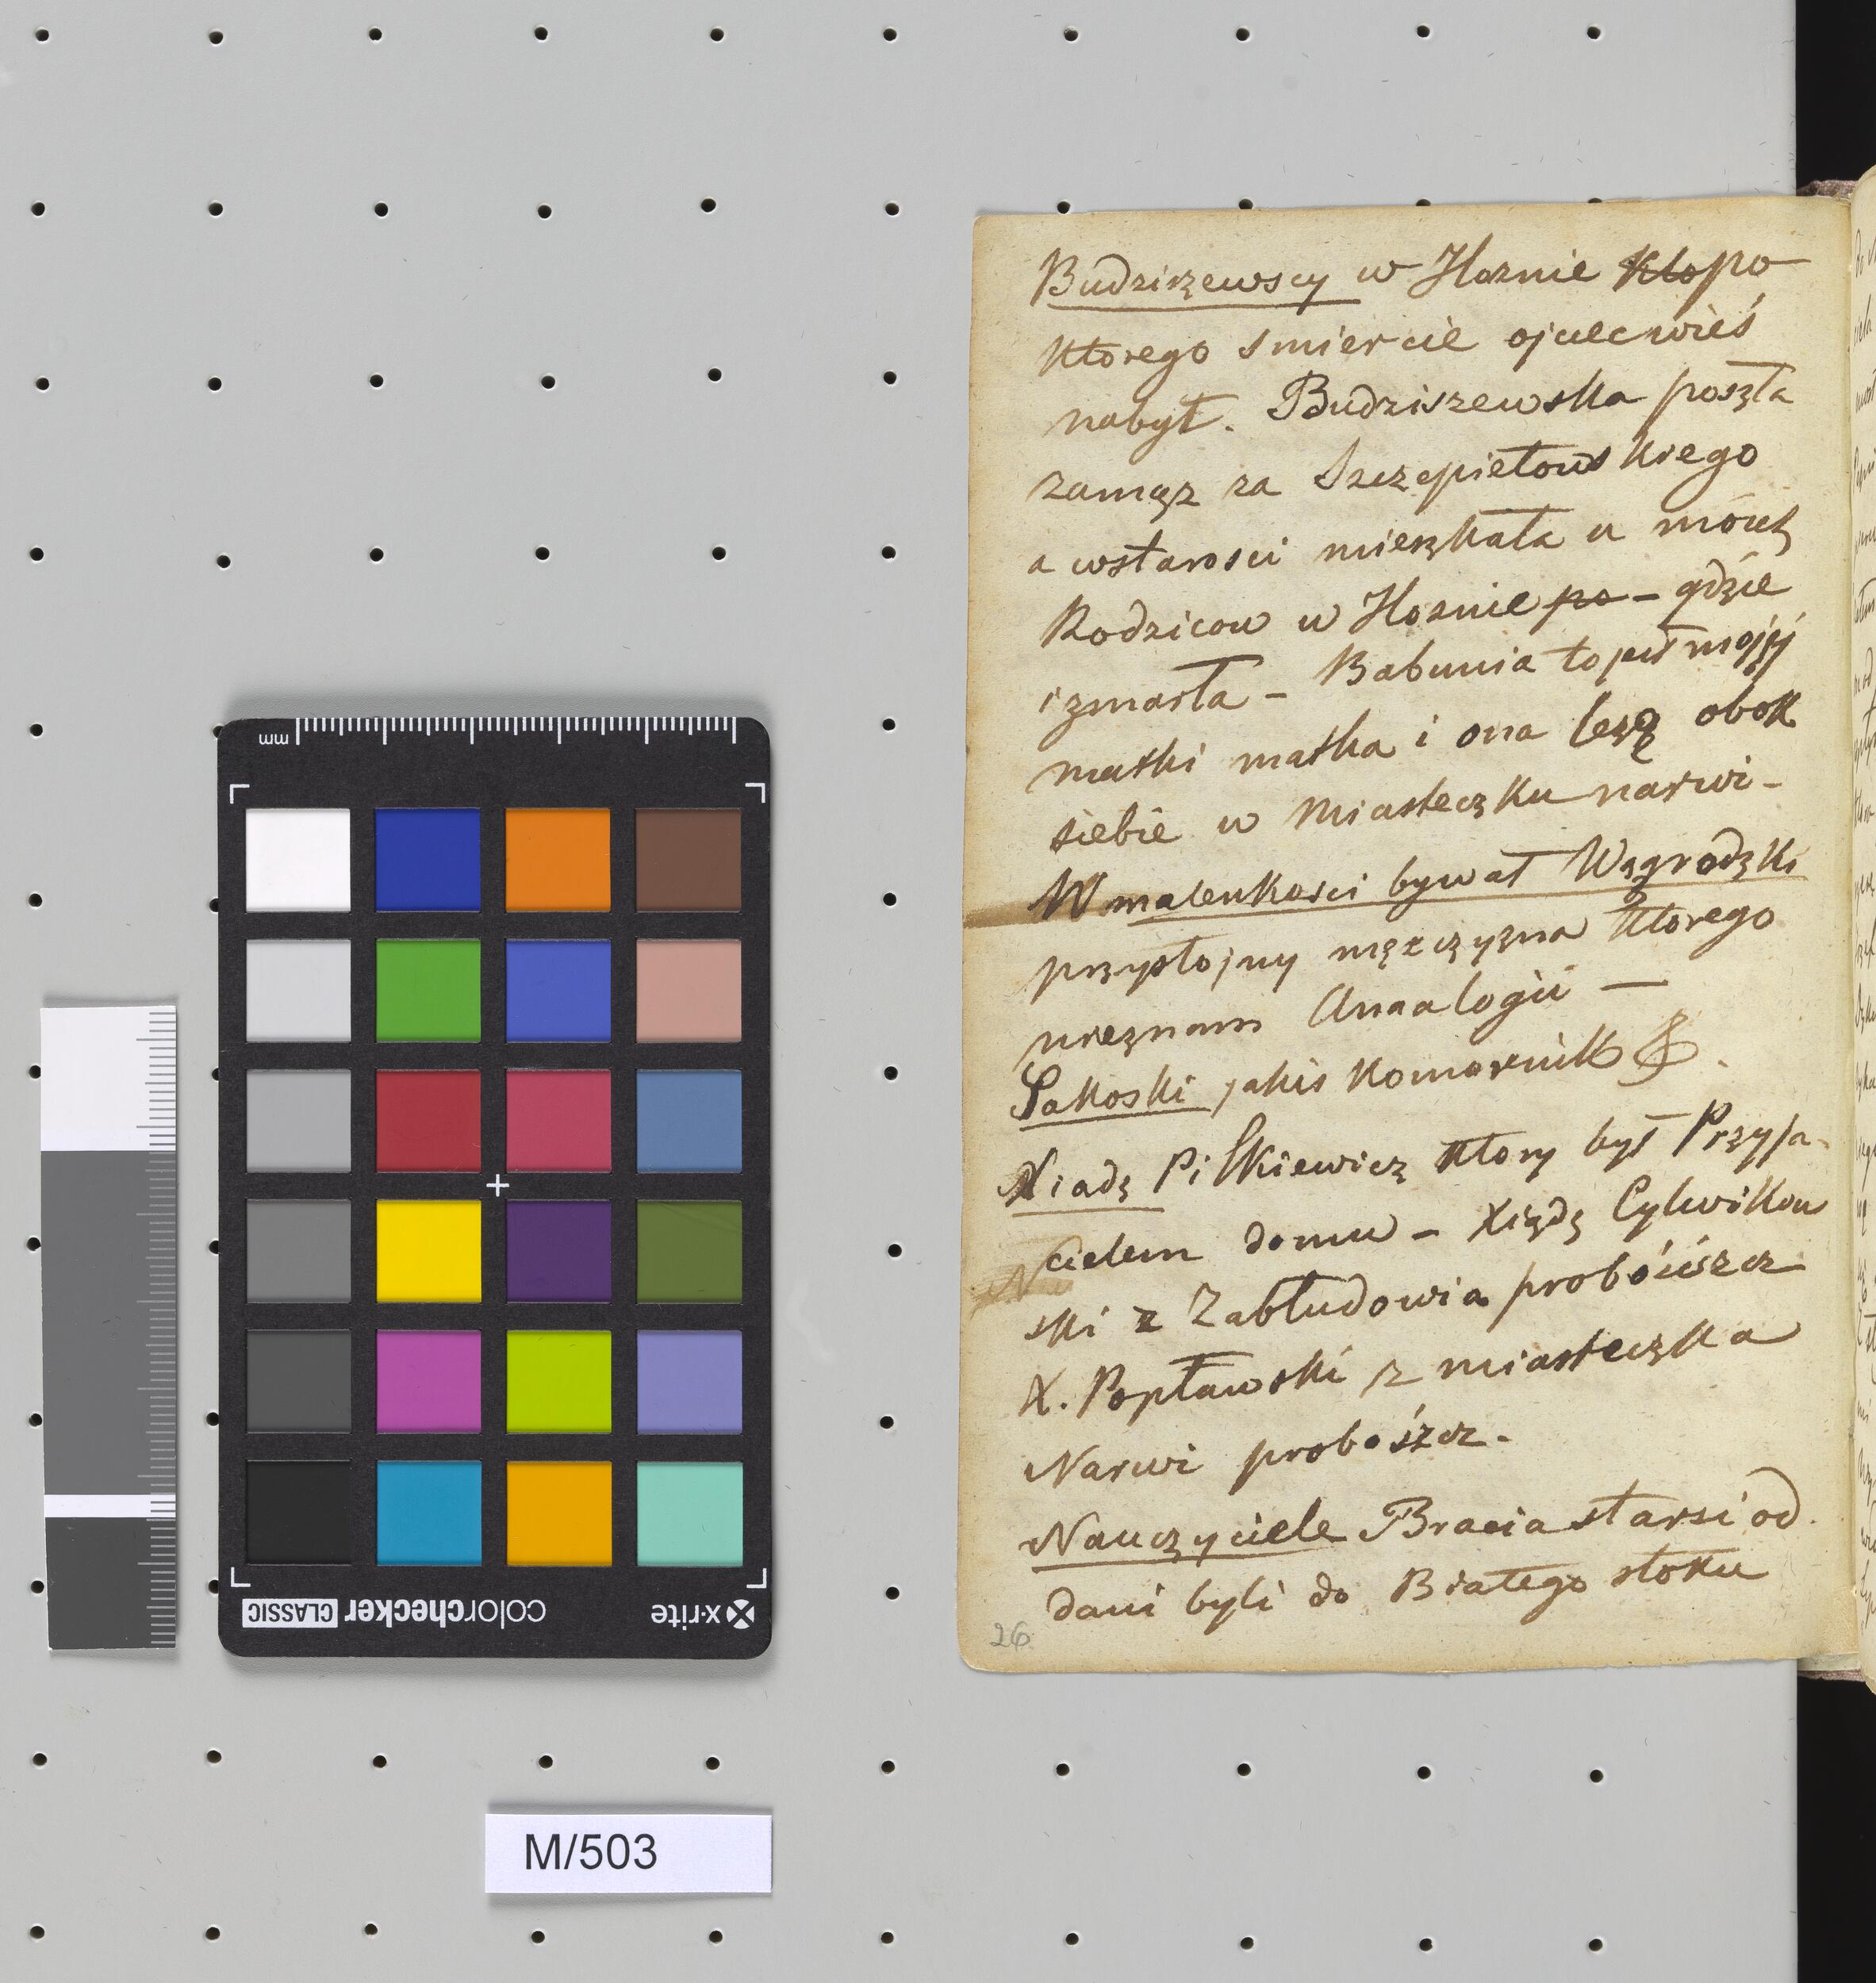 mm
colorchecker CLASSIC
x-rite
M/503
Budziszewscy w Hoznie Kto po
Ktorego smiercie ojciec wieś
nabył. Budziszewska poszła
zamąz za Szczepietowskiego
a wstarosci mieszkała u moich
Rodzicow w Hoznie po - gdzie
i zmarła - Babunia to jest mojéj
matki matka i ona lezą obok
siebie w Miasteczku narwi-
W malenkosci bywał Wągrodzki
przystojny męzczyzna Ktorego
nieznam Anaalogii —
Sakoski jakis Komornik
Xiadz Pilkiewicz Ktory był Przyja-
cielem domu - Xiądz Cylwikow
ski z Zabłudowia probóiszcz
X. Popławski z miasteczka
Narwi probośzcz.
Nauczyciele Bracia starsi od
dani byli do Białego stoku
26